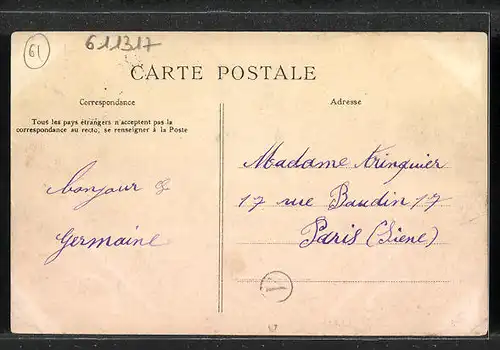 61
611317
CARTE POSTALE
Correspondance
Adresse
Tous les pays étrangers n'acceptent pas la
correspondance au recto, se renseigner à la Poste
bonjour &
Germaine
Madame Trinquier
17 rue Baudin 17
Paris (Siene)